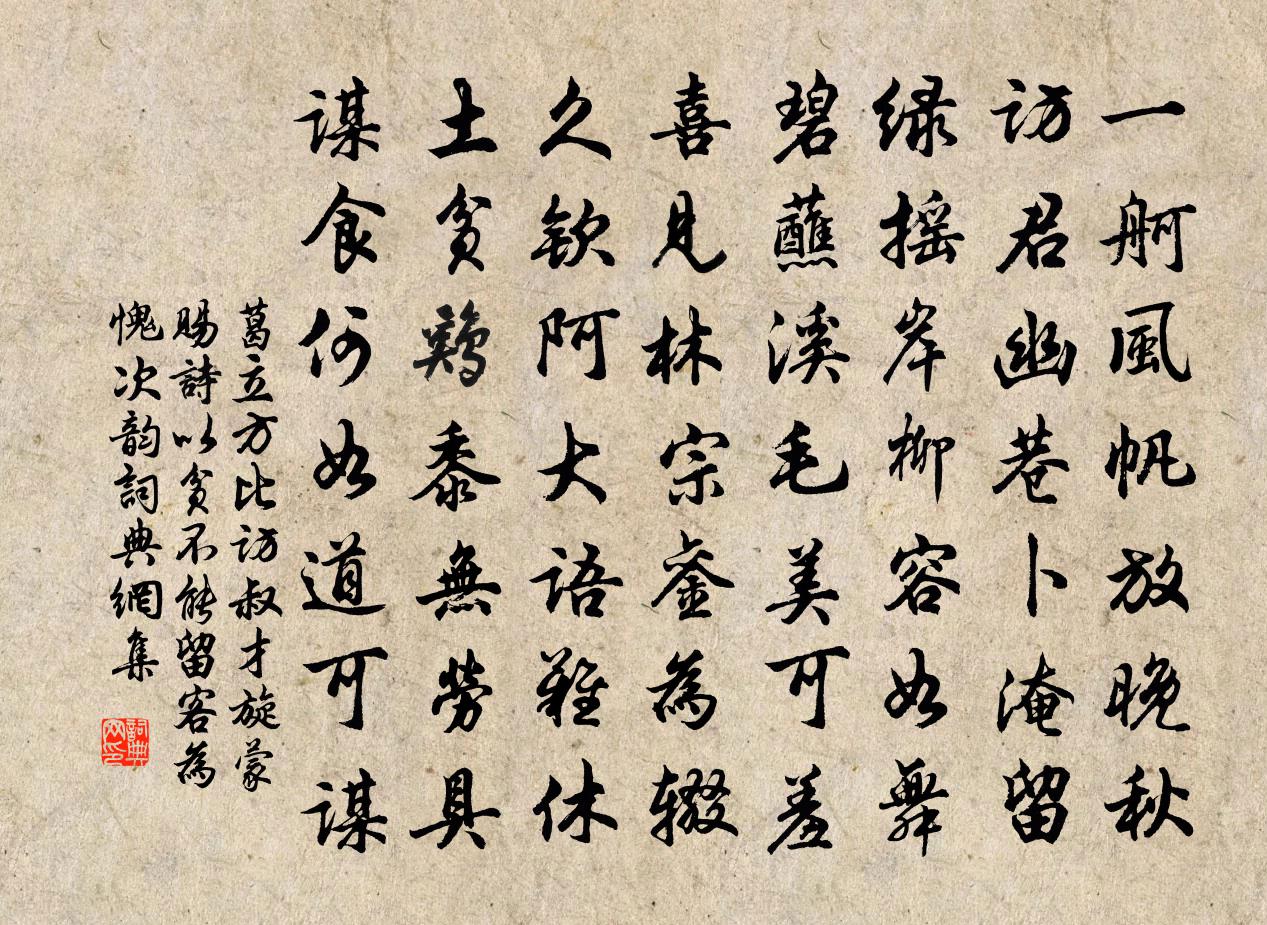 一舸風帆放晚秋
訪君幽巷卜淹留
緑摇岸柳容如舞
碧蘸溪毛美可羞
喜見林宗銮為辍
久欽阿大語難休
土貧鷄黍無勞具
謀食何如道可謀
葛立方比訪叔才旋蒙
賜詩以貧不能留客為
愧次韵詞典網集
詞典網印